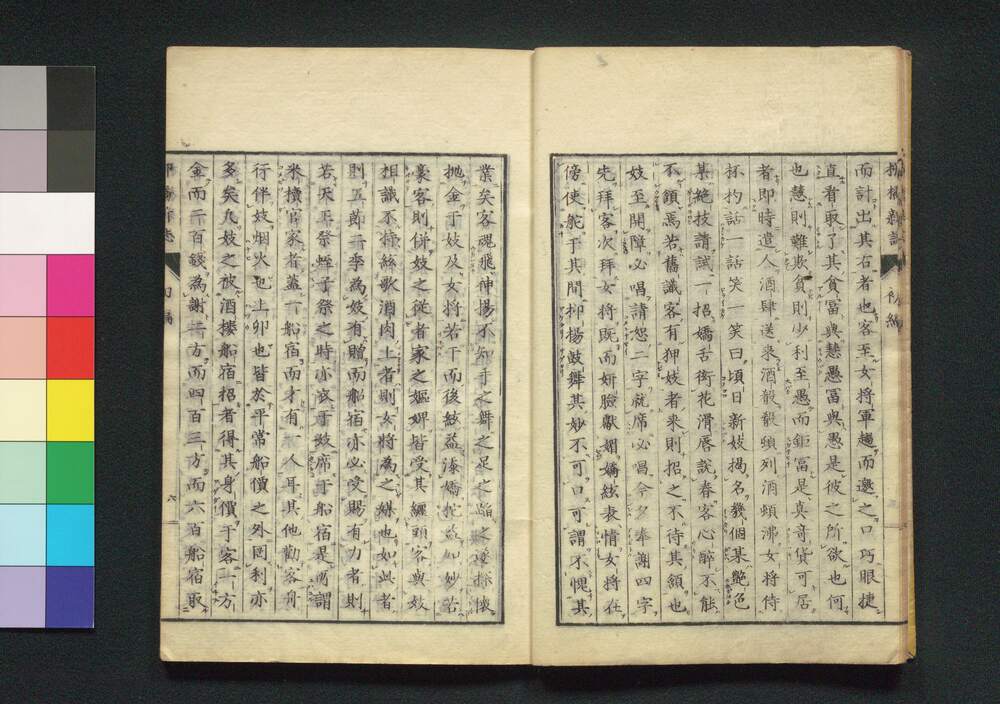 而計出其右者也客至女將軍趨而邀之口巧眼捷
直看取了其貧冨與慧愚冨與愚是彼之所欲也何
也慧則難欺貧則少利至愚而鉅冨是真奇貨可居
者即時遣人酒肆送来酒殽殽頻列酒頻沸女將侍
抔杓話一話笑一笑曰頃日新妓掲名幾個某艶色
某絶技請試一招嬌舌衔花滑唇説春客心醉不能
不頷焉若舊識客有狎妓者来則招之不待其頷也
妓至開障必唱請恕二字就席必唱今夕奉謝四字
先拜客次拜女將既而妍臉獻媚嬌絃表情女將在
傍使舵于其間抑揚鼓舞其妙不可口可謂不愧其
業矣客魂飛伸揚不知手之舞之足之蹈之遂探懐
抛金于妓及女將若干而後絃益湊嬌
裏客則併妓之従者家之嫗婢皆受其纏頭客與妓
相識不擁絲歌酒肉上者則女將為之媒也如此者
則五節二季為妓有贈而船宿亦必受賜有力者則
若天王祭蛭子祭之時亦設于妓席于船宿是所謂
米櫝官家者蓋一船宿而才有一人耳其他勸客舟
行伴妓烟火也上卯也皆於平常船價之外罔利亦
多矣凡妓之被酒楼船宿招者得其身價于客二方
金而二百錢為謝三方而四百三方而六百船宿取
初編
六